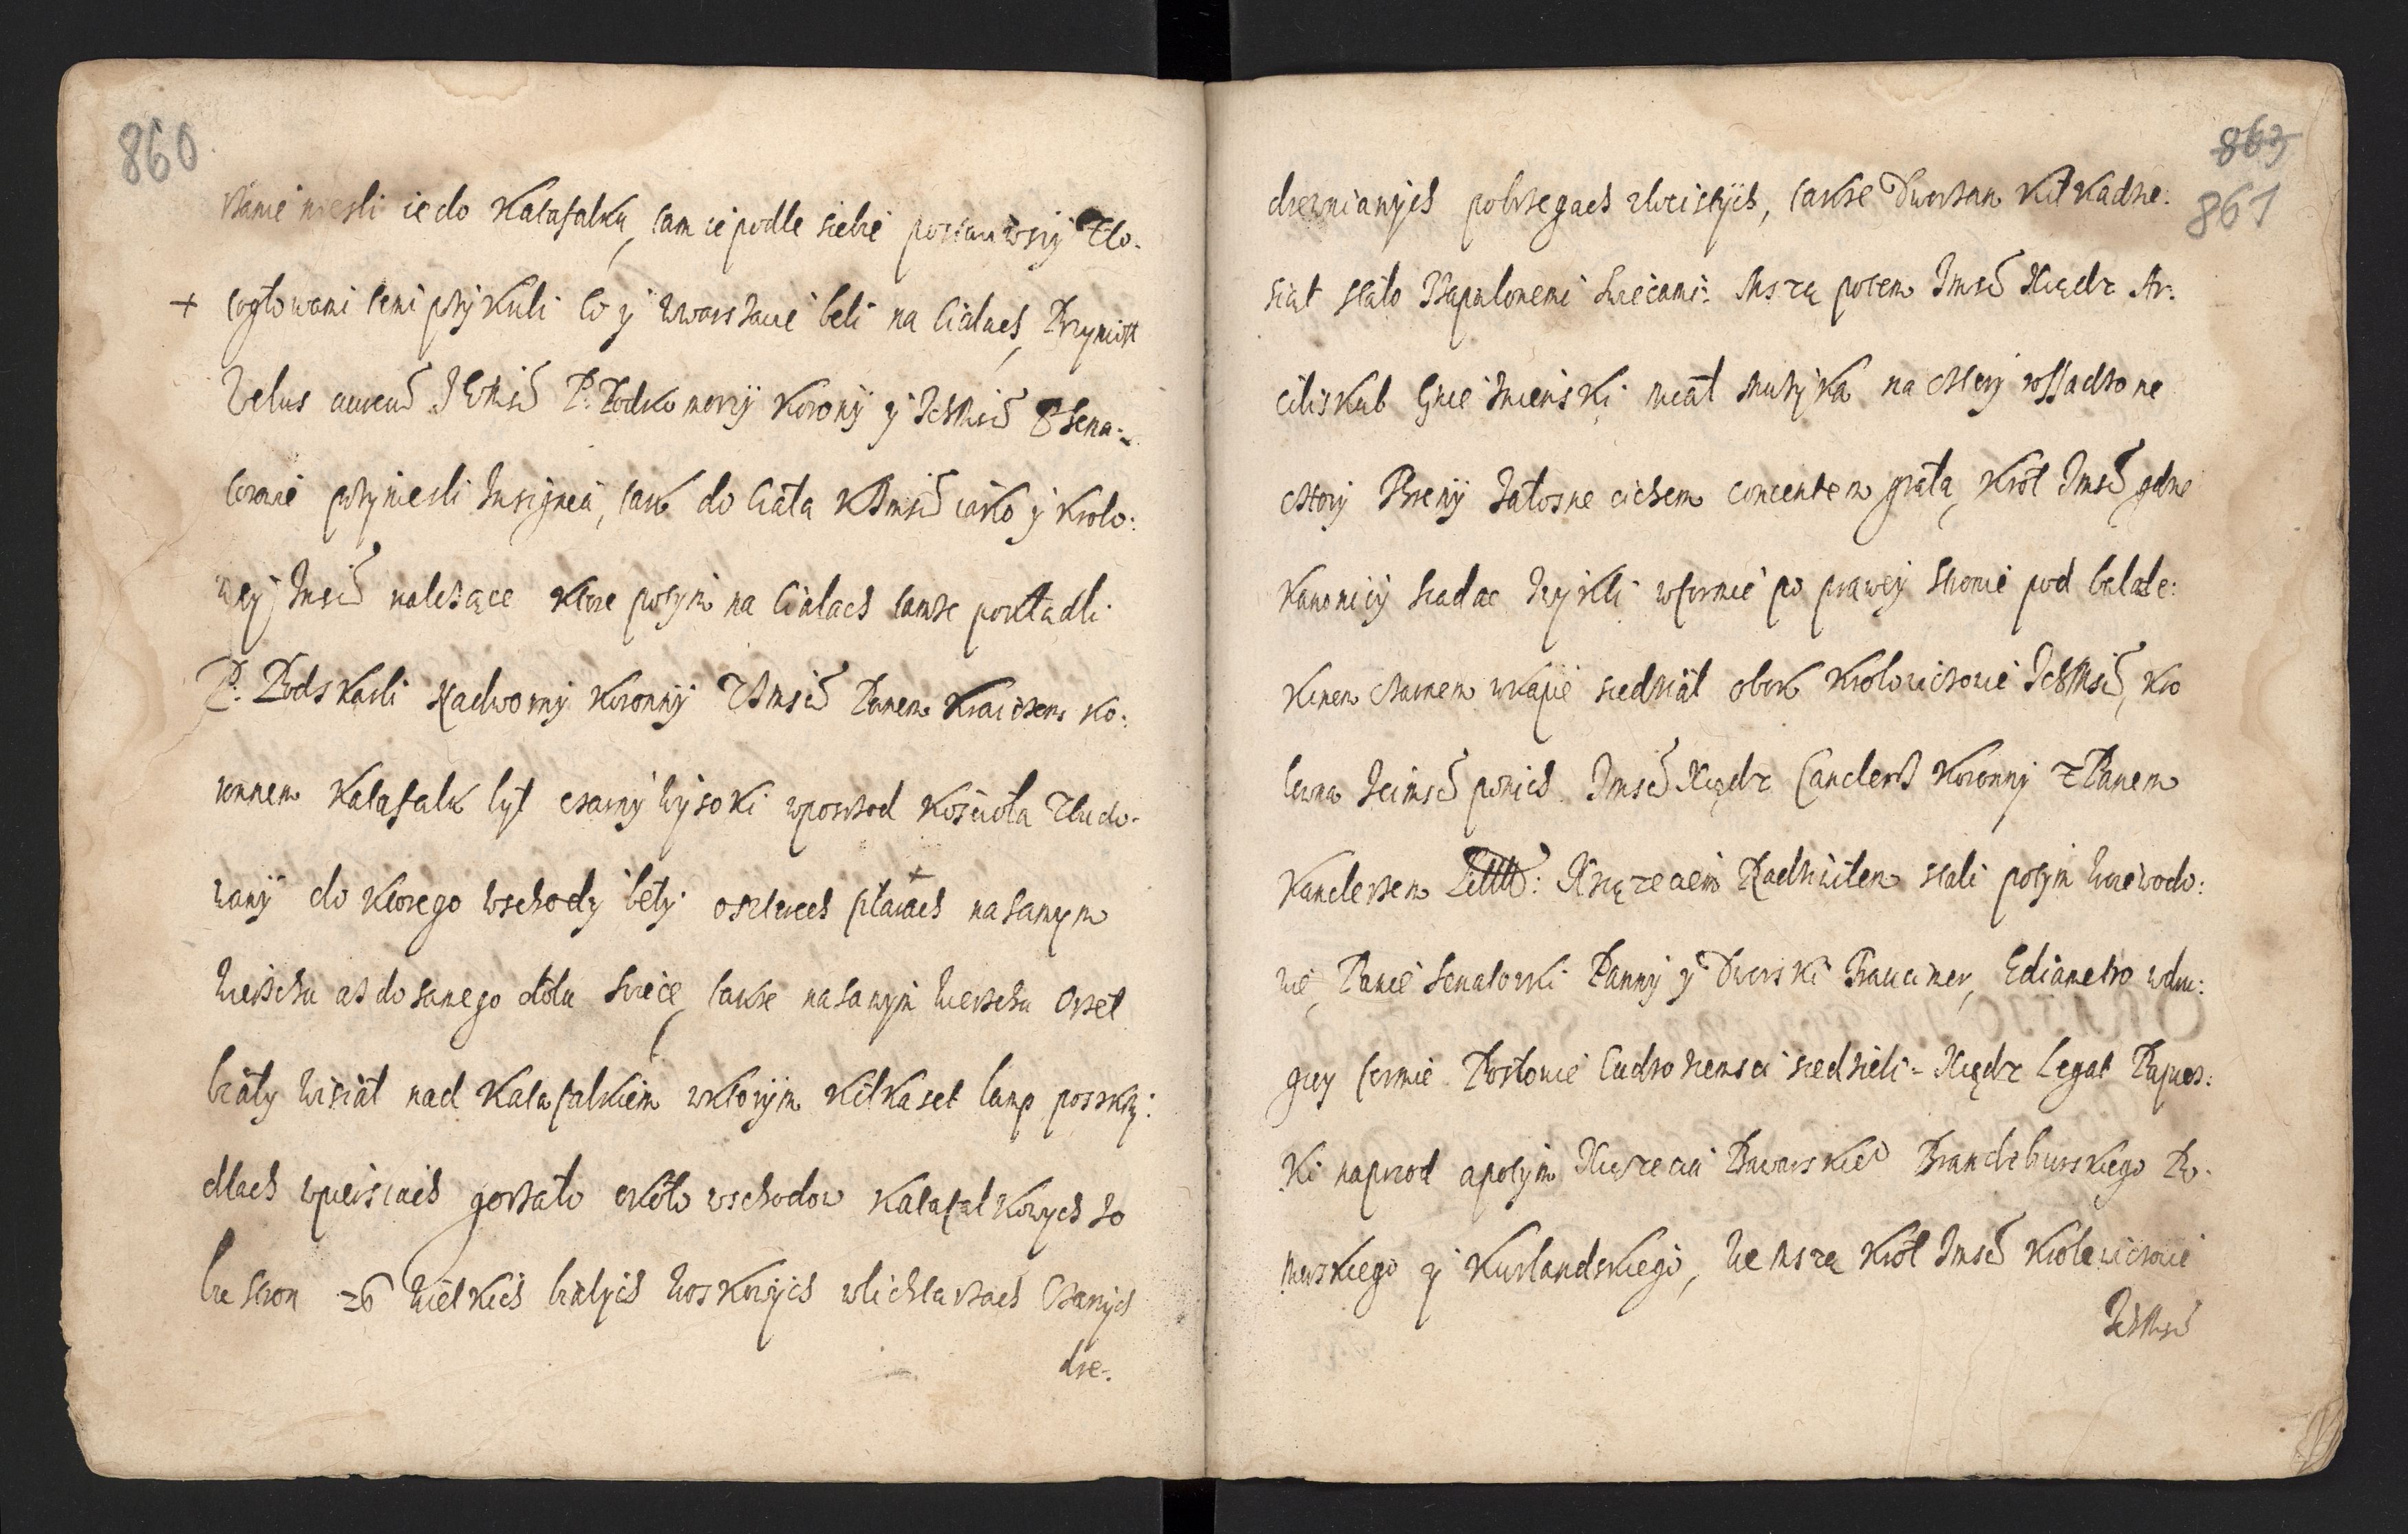 860
niesli ie do Katafalku, tam ie podle siebie postawiwszy Zło-
+ togłowami temi przykuli co y wWarszawie beli na Ciałach, Przyniosł
Velus aureus JEMść P: Podkomorzy Korony y IchMść PP Sena:
torowie przyniesli Insignia, tak do Ciała KJmści iako y Krolo:
wej Jmści nalezące ktore potym na Ciałach tamze pokładli
P: Podskarbi Nadworny Koronny ZJmścią Panem Kraiczem Ko:
ronnem Katafalk był czarny wysoki wposrzod Koscioła Zbudo-
wany do ktorego wschody beły o sztereh na samym
Wierzchu asz do samego dołu swiece, takze na samym wierzchu Orzeł
biały wisiał nad Katafalkiem wktorym Kilka set lamp po skrzy:
dłach wpiersiach gorzało około wschodow Katafalkowych zo
bu stron 26 Wielkich białych woskowych wlichtarzach Czarnych
dre-.
863
861
drewnianych pobrzegach złocistych, takze Dworzan Kilkadzie:
siat stało Zzapalonemi Swiecami: Mszą potem Jmść Xiądz Ar:
cibiskub Gnieznienski miał Muzyka na cztery rossadzone
chory Treny Załosne cichem concentem grała, Krol Jmść gdzie
Kanonicy siadac zwykli wformie po prawey stronie pod balde:
kinem czarnem wkapie siedział obok Krolowicowie IchMść, Kro
lewna Jeimść ponich. Jmść Xiądz Canclerz Koronny z Panem
Kanclerzem Littt: Xsięzeciem Radziwiłem stali potym Woiewodo:
wie, Panie Senatorki Panny y Dworski Fraucimer, Ediametro wdru:
giey formie Posłowie Cudzoziemsci siedzieli - Xiądz Legat Papies:
ki naprzod a potym Xiązecia Bawarskie° Brandeburskiego Po-
morskiego y Kurlandskiego, We Mszą Krol Jmść Krolewicowie
IchMść